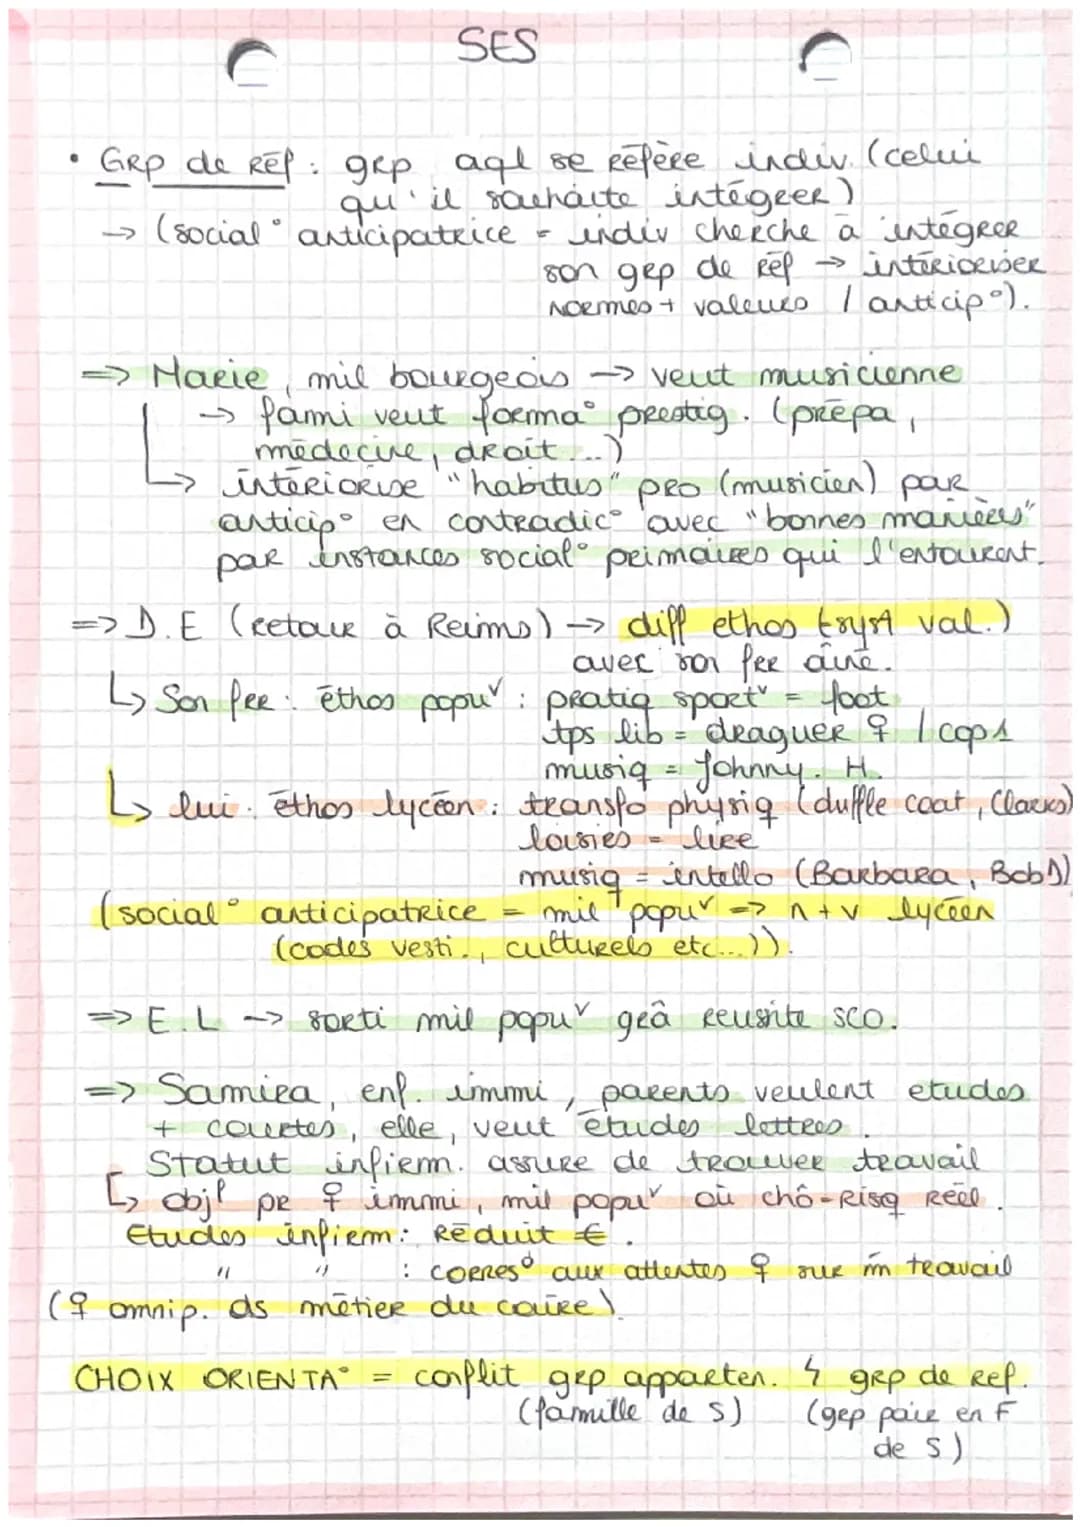 SES
• GRP de Réf : grp aql se réfère indiv. (celui
qu'il souhaite intégrer)
→ (social° anticipatrice = indiv cherche à intégrer
son grp de réf → intérioriser
normes + valeurs / anticip°).
=> Marie, mil bourgeois → veut musicienne
→ fami veut forma° prestig. (prépa,
médecine, droit...)
↳ intériorise "habitus" pro (musicien) par
anticip° en contradic° avec "bonnes manières"
par instances social° primaires qui l'entourent.
=> D.E (retour à Reims) → diff ethos (syst val.)
avec son frr aîné.
↳ Son frr : éthos popuᵛ : pratiq sportᵛ = foot
tps lib = draguer ♀ / cops
musiq = Johnny. H.
↳ lui : éthos lycéen : transfo physiq (duffle coat, Clarks)
loisirs = lire
musiq = intello (Barbara, Bob D)
(social° anticipatrice = mil popuᵛ => n + v lycéen
(codes vesti., culturels etc...)).
=> E.L → sorti mil popuᵛ grâ reusite sco.
=> Samira, enf. immi, parents veulent etudes
+ courtes, elle, veut études lettres.
Statut infirm. assure de trouver travail
↳ objᶠ pr ♀ immi, mil popuᵛ où chô-risq réel.
Etudes infirm : Réduit €.
" " : corres° aux attentes ♀ sur m̂ travail
(♀ omnip. ds métier du caire)
CHOIX ORIENTA° = conflit grp apparten. ↯ grp de ref.
(famille de S) (grp pair en F
de S)